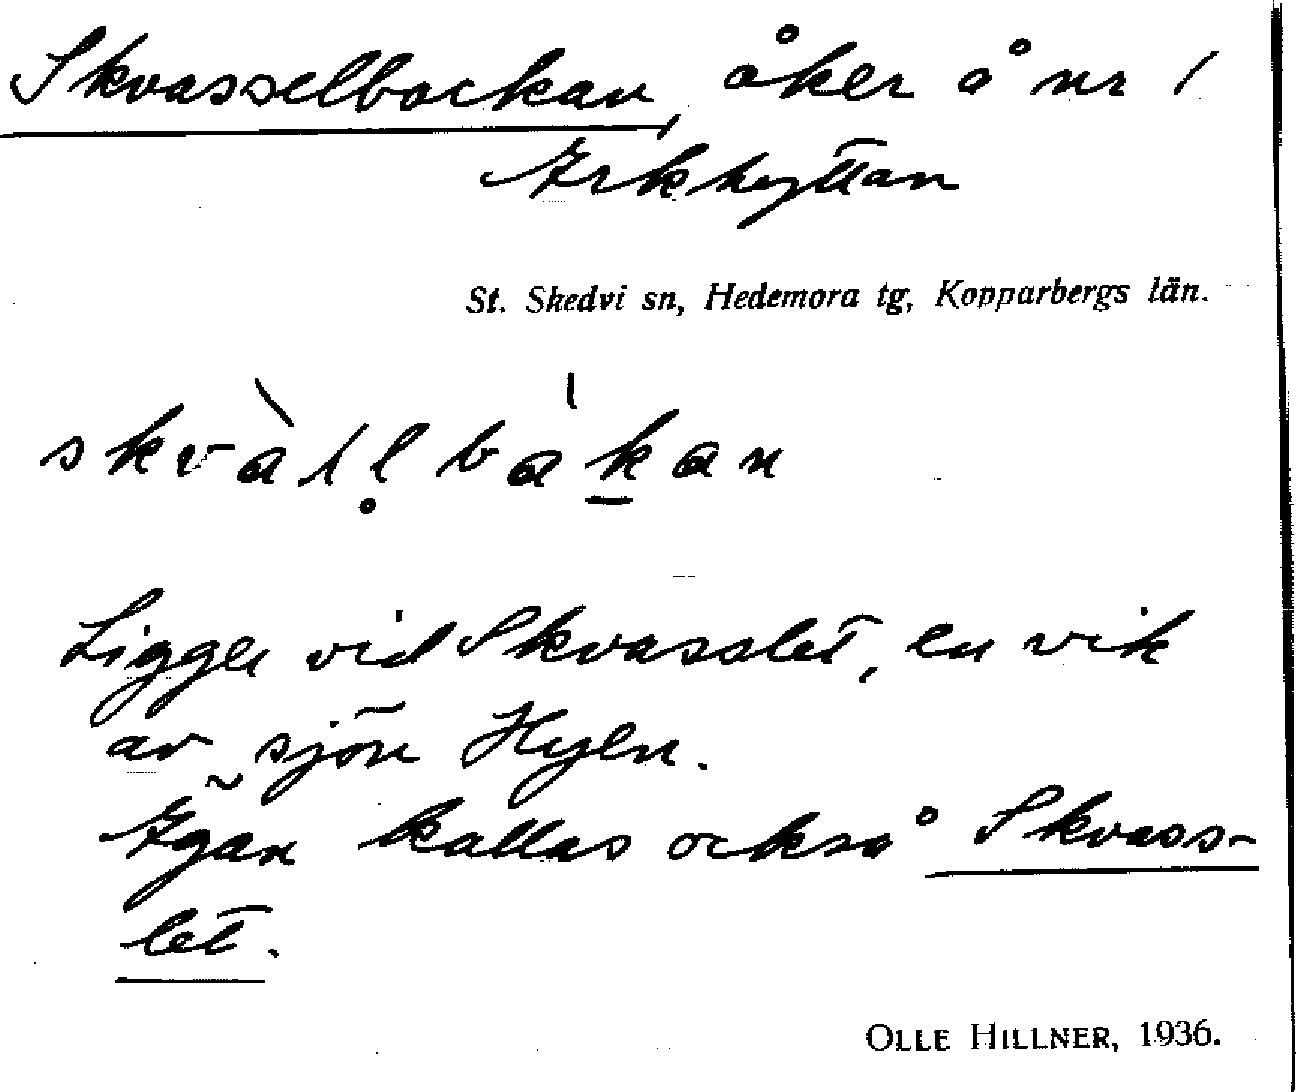 Skvasselbackan, åker å nr 1
Arkhyttan
St. Skedvi sn, Hedemora tg, Kopparbergs län.
Ligger vid Skvasslet, en vik
av sjön Hyen.
Ägan kallas också Skvass-
let.
OLLE HILLNER, 1936.